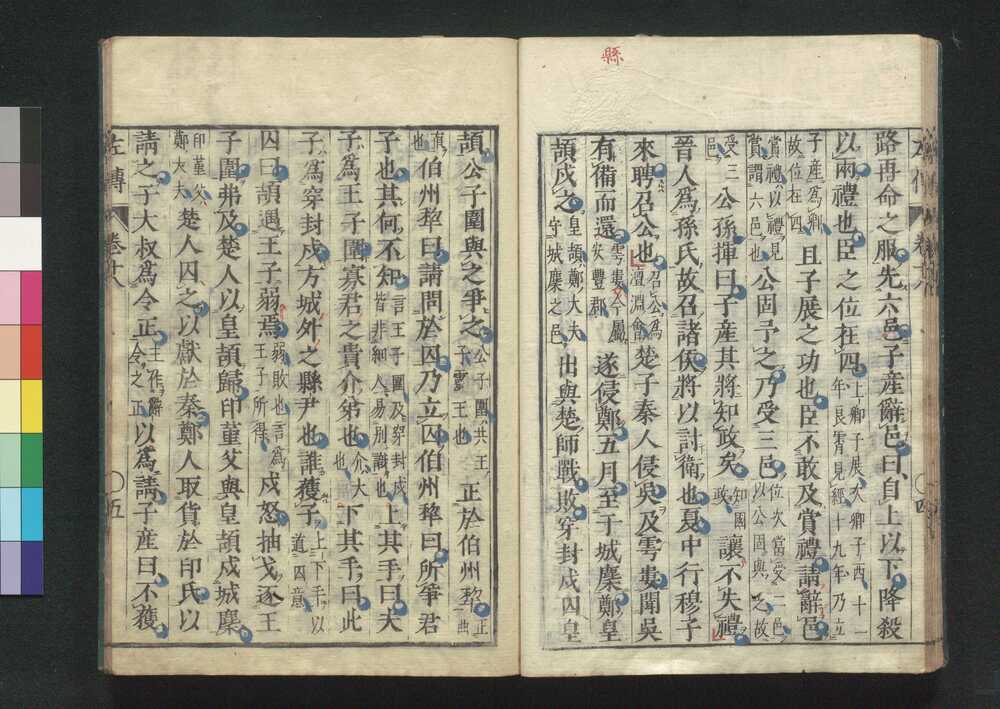 縣
路再命之服先六邑子產辭邑曰自上以下降殺
以兩禮也臣之位在四上卿子展次卿子西十一年良霄見經十九年乃立
子產爲卿故位在四且子展之功也臣不敢及賞禮請辭邑
賞禮以禮見賞謂六邑也公固予之乃受三邑位次當受二邑以公固與之故
受三邑公孫揮曰子產其將知政矣知國政讓不失禮
晉人爲孫氏故召諸侯將以討衛也夏中行穆子
來聘召公也召公爲澶淵會楚子秦人侵吳及雩婁聞吳
有備而還雩婁今屬安豐郡遂侵鄭五月至于城麇鄭皇
頡戍之皇頡鄭大夫守城麇之邑出與楚師戰敗穿封戌囚皇
頡公子圍與之爭之公子圍共王子靈王也正於伯州犂正曲
直也伯州犂曰請問於囚乃立囚伯州犂曰所爭君
子也其何不知言王子圍及穿封戌皆非細人易別識也上其手曰夫
子爲王子圍寡君之貴介弟也介大也下其手曰此
子爲穿封戌方城外之縣尹也誰獲子上下手以道囚意
囚曰頡遇王子弱焉弱敗也言爲王子所得戌怒抽戈逐王
子圍弗及楚人以皇頡歸印堇父與皇頡戍城麇
印堇父鄭大夫楚人囚之以獻於秦鄭人取貨於印氏以
請之子大叔爲令正主作辭令之正以爲請子產曰不獲
左傳 卷十八 五